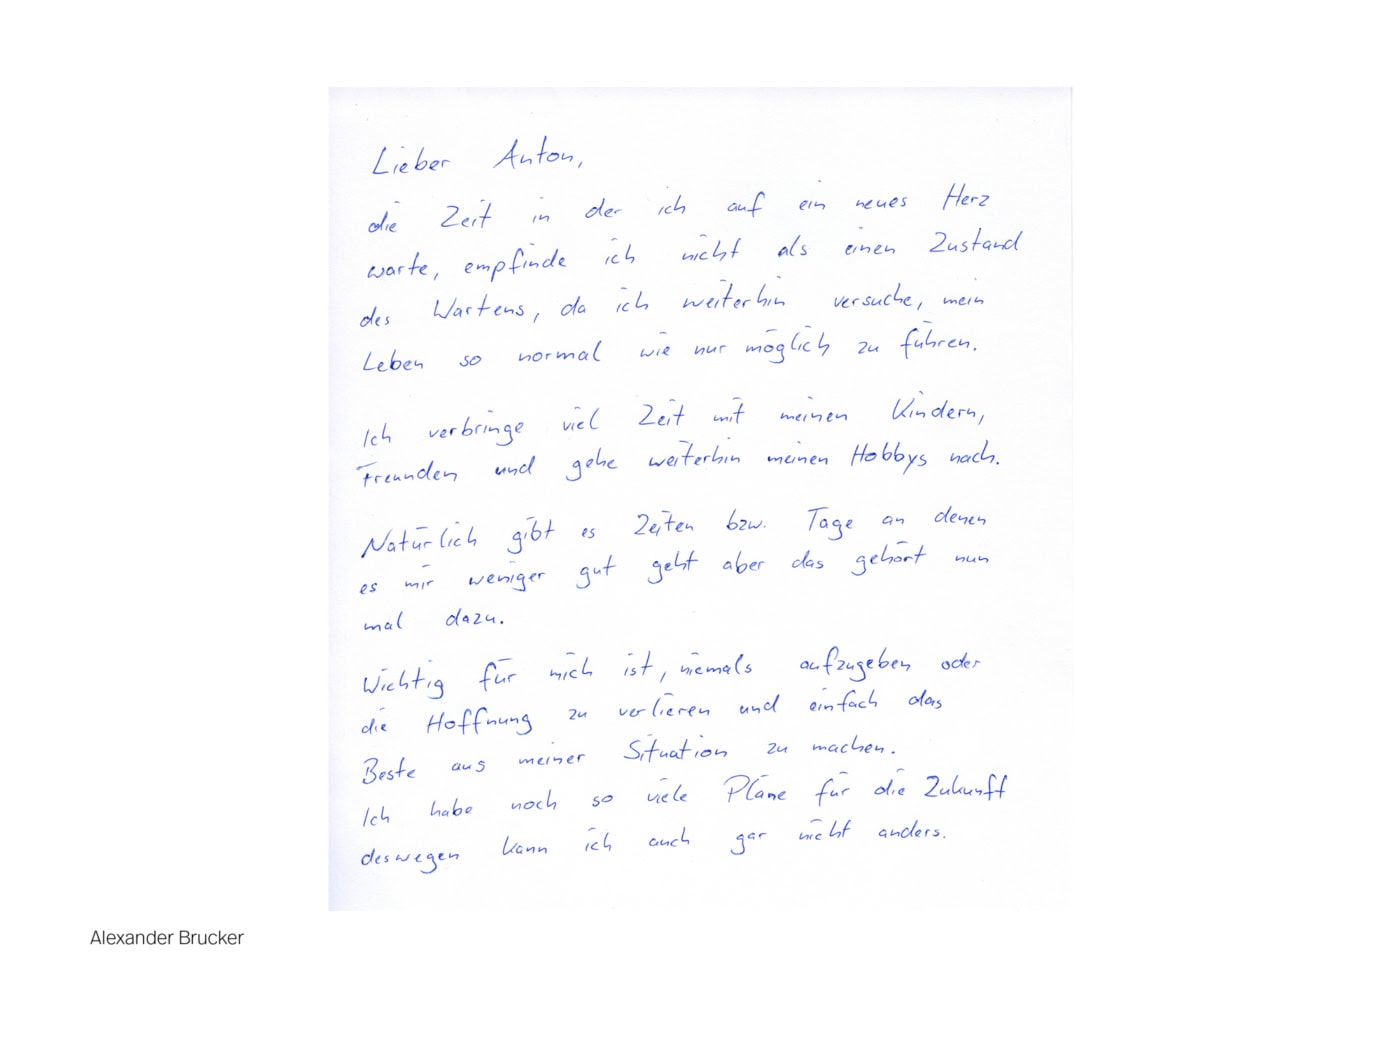 Lieber Anton,
die Zeit in der ich auf ein neues Herz
warte, empfinde ich nicht als einen Zustand
des Wartens, da ich weiterhin versuche, mein
Leben so normal wie nur möglich zu führen.
Ich verbringe viel Zeit mit meinen Kindern,
Freunden und gehe weiterhin meinen Hobbys nach.
Natürlich gibt es Zeiten bzw. Tage an denen
es mir weniger gut geht aber das gehört nun
mal dazu.
Wichtig für mich ist, niemals aufzugeben oder
die Hoffnung zu verlieren und einfach das
Beste aus meiner Situation zu machen.
Ich habe noch so viele Pläne für die Zukunft
deswegen kann ich auch gar nicht anders.
Alexander Brucker